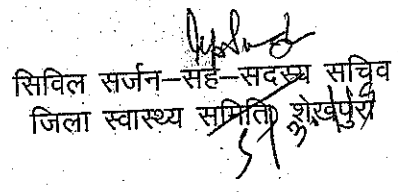 सिविल सर्जन-सह-सदस्य सचिव
जिला स्वास्थ्य समिति, शेखपुरा